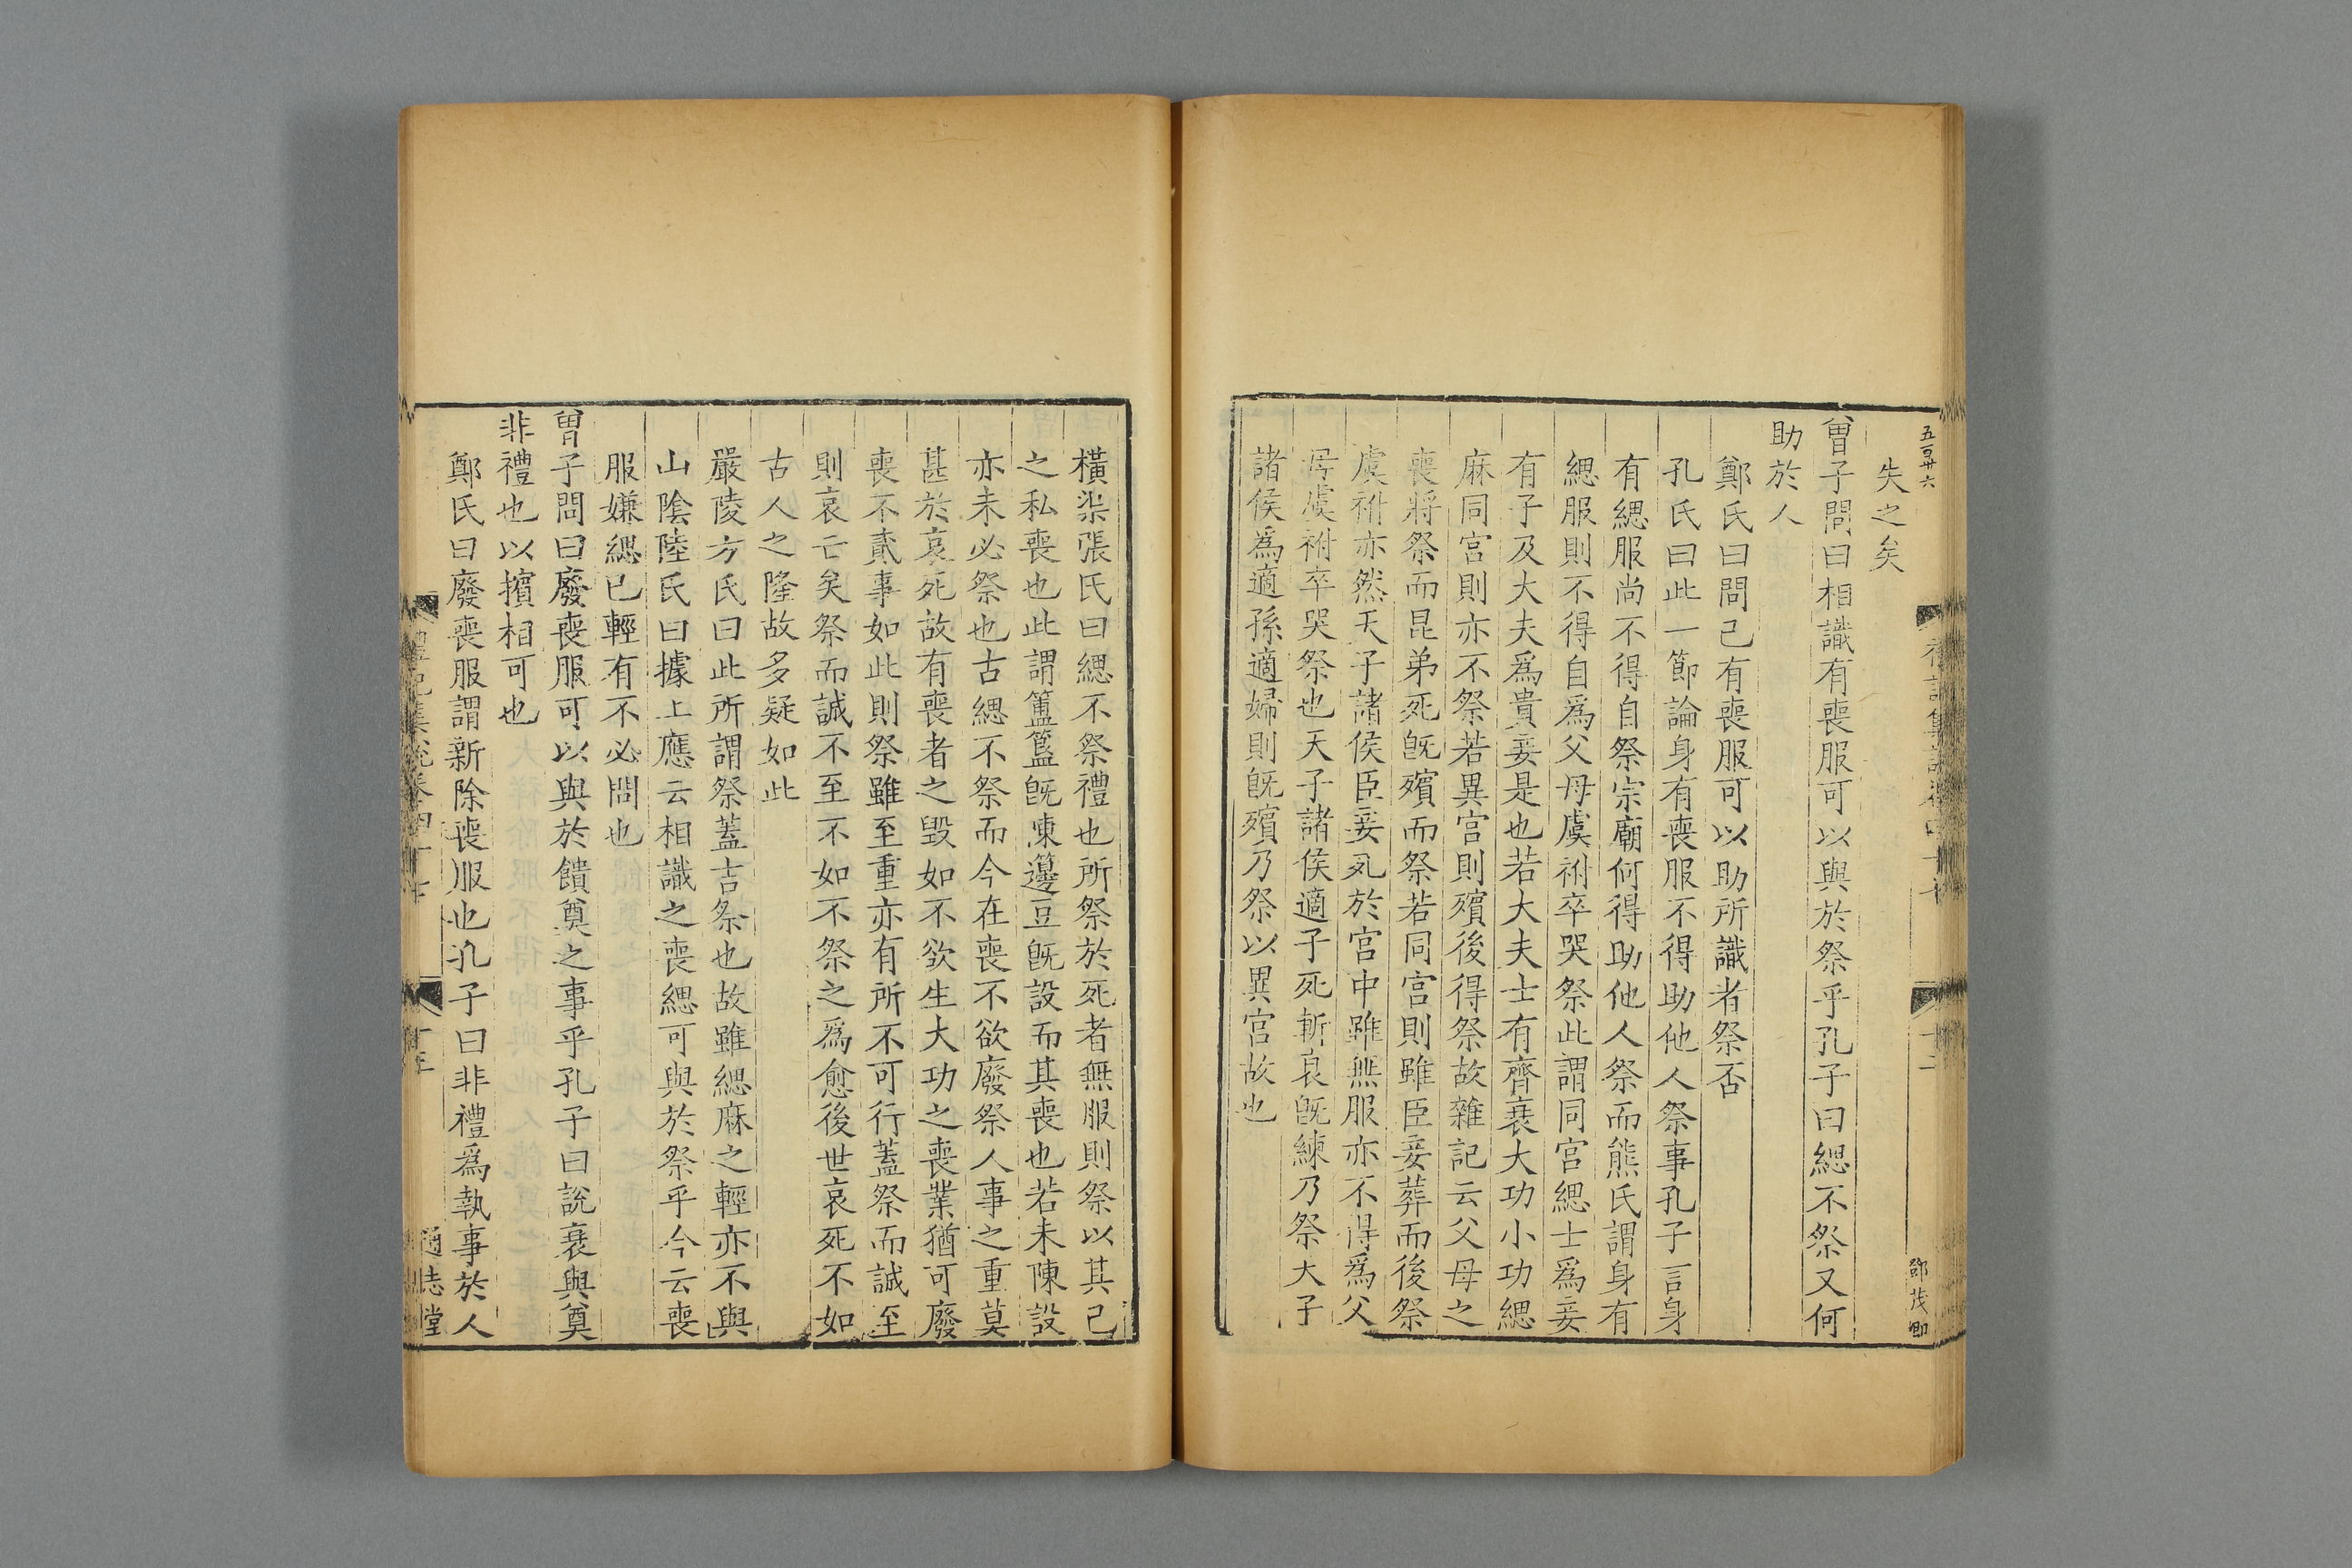 五百卄六
失之矣
曾子問曰相識有喪服可以與於祭乎孔子曰緦不祭又何
助於人
鄭氏曰問己有喪服可以助所識者祭否
孔氏曰此一節論身有喪服不得助他人祭事孔子言身
有緦服尚不得自祭宗廟何得助他人祭而熊氏謂身有
緦服則不得自爲父母虞祔卒哭祭此謂同宮緦士爲妾
有子及大夫爲貴妾是也若大夫士有齊衰大功小功緦
麻同宮則亦不祭若異宮則殯後得祭故雜記云父母之
喪將祭而昆弟死旣殯而祭若同宮則雖臣妾葬而後祭
虞祔亦然天子諸侯臣妾死於宮中雖無服亦不得爲父
母虞祔卒哭祭也天子諸侯適子死斬衰旣練乃祭大子
諸侯爲適孫適婦則旣殯乃祭以異宮故也
禮記集說卷四十七
十二
鄧茂卿
橫渠張氏曰緦不祭禮也所祭於死者無服則祭以其己
之私喪也此謂簠簋旣陳籩豆旣設而其喪也若未陳設
亦未必祭也古緦不祭而今在喪不欲廢祭人事之重莫
甚於哀死故有喪者之毀如不欲生大功之喪業猶可廢
喪不貳事如此則祭雖至重亦有所不可行蓋祭而誠至
則哀亡矣祭而誠不至不如不祭之爲愈後世哀死不如
古人之隆故多疑如此
嚴陵方氏曰此所謂祭蓋吉祭也故雖緦麻之輕亦不與
山陰陸氏曰據上應云相識之喪緦可與於祭乎今云喪
服嫌緦已輕有不必問也
曾子問曰廢喪服可以與於饋奠之事乎孔子曰說衰與奠
非禮也以擯相可也
鄭氏曰廢喪服謂新除喪服也孔子曰非禮爲執事於人
禮記集說卷四十七
通志堂